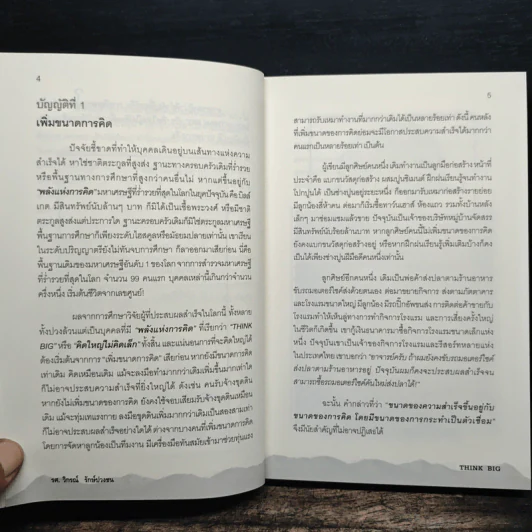 4
บัญญัติที่ 1
เพิ่มขนาดการคิด
ปัจจัยชี้ขาดที่ทำให้บุคคลเดินอยู่บนเส้นทางแห่งความ
สำเร็จได้ หาใช่ชาติตระกูลที่สูงส่ง ฐานะทางครอบครัวเดิมที่ร่ำรวย
หรือพื้นฐานทางการศึกษาที่สูงกว่าคนอื่นไม่ หากแต่ขึ้นอยู่กับ
"พลังแห่งการคิด" มหาเศรษฐีที่ร่ำรวยที่สุดในโลกในยุคปัจจุบัน คือ บิลล์
เกต มีสินทรัพย์นับล้านๆ บาท ก็มิได้เป็นเชื้อพระวงศ์ หรือมีชาติ
ตระกูลสูงส่งแต่ประการใด ฐานะครอบครัวเดิมก็มิใช่ตระกูลมหาเศรษฐี
พื้นฐานการศึกษาก็เพียงระดับไฮสคูลหรือมัธยมปลายเท่านั้น เขาเรียน
ในระดับปริญญาตรียังไม่ทันจบการศึกษา ก็ลาออกมาเสียก่อน นี่คือ
พื้นฐานเดิมของมหาเศรษฐีอันดับ 1 ของโลก จากการสำรวจมหาเศรษฐี
ที่ร่ำรวยที่สุดในโลก จำนวน 99 คนแรก บุคคลเหล่านี้เกินกว่าจำนวน
ครึ่งหนึ่ง เริ่มต้นชีวิตจากเลขศูนย์!
ผลจากการศึกษาวิจัยผู้ที่ประสบผลสำเร็จในโลกนี้ ทั้งหลาย
ทั้งปวงล้วนแต่เป็นบุคคลที่มี "พลังแห่งการคิด" ที่เรียกว่า "THINK
BIG" หรือ "คิดใหญ่ไม่คิดเล็ก" ทั้งสิ้น และแน่นอนการที่จะคิดใหญ่ได้
ต้องเริ่มต้นจากการ "เพิ่มขนาดการคิด" เสียก่อน หากยังมีขนาดการคิด
เท่าเดิม คิดเหมือนเดิม แม้จะลงมือทำมากกว่าเดิมเพิ่มขึ้นมากเท่าใด
ก็ไม่อาจประสบความสำเร็จที่ยิ่งใหญ่ได้ ดังเช่น คนรับจ้างขุดดิน
หากยังไม่เพิ่มขนาดของการคิด ยังคงใช้จอบเสียมรับจ้างขุดดินเหมือน
เดิม แม้จะทุ่มเทแรงกาย ลงมือขุดดินเพิ่มมากกว่าเดิมเป็นสองสามเท่า
ก็ไม่อาจประสบผลสำเร็จอย่างใดได้ ต่างจากบางคนที่เพิ่มขนาดการคิด
โดยการจัดหาลูกน้องเป็นทีมงาน มีเครื่องมือทันสมัยเข้ามาช่วยทุ่นแรง
รศ. วิกรณ์ รักษ์ปวงชน
5
สามารถรับเหมาทำงานที่มากกว่าเดิมได้เป็นหลายร้อยเท่า ดังนี้ คนหลัง
ที่เพิ่มขนาดของการคิดย่อมจะมีโอกาสประสบความสำเร็จได้มากกว่า
คนแรกเป็นหลายร้อยเท่า เป็นต้น
ผู้เขียนมีลูกศิษย์คนหนึ่ง เดิมทำงานเป็นลูกมือก่อสร้าง หน้าที่
ประจำคือ แบกขนวัสดุก่อสร้าง ผสมปูนซีเมนต์ ฝึกฝนเรียนรู้จนทำงาน
ไปๆ ได้ เป็นช่างปูนอยู่ระยะหนึ่ง ก็ออกมารับเหมาก่อสร้างรายย่อย
มีลูกน้องสี่ห้าคน ต่อมาก็เริ่มซื้อทาวน์เฮาส์ ห้องแถว รวมทั้งบ้านหลัง
เล็กๆ มาซ่อมแซมแล้วขาย ปัจจุบันเป็นเจ้าของบริษัทหมู่บ้านจัดสรร
มีสินทรัพย์นับร้อยล้านบาท หากลูกศิษย์คนนี้ไม่เพิ่มขนาดของการคิด
ยังคงแบกขนวัสดุก่อสร้างอยู่ หรือหากฝึกฝนเรียนรู้เพิ่มเติมบ้างก็คง
เป็นได้เพียงช่างปูนฝีมือดีคนหนึ่งเท่านั้น
ลูกศิษย์อีกคนหนึ่ง เดิมเป็นพ่อค้าส่งปลาตามร้านอาหาร
ขับรถมอเตอร์ไซค์ส่งด้วยตนเอง ต่อมาขยายกิจการ ส่งตามภัตตาคาร
และโรงแรมขนาดใหญ่ มีลูกน้อง มีรถปิ๊กอัพขนส่ง การติดต่อค้าขายกับ
โรงแรมทำให้เห็นลู่ทางการทำกิจการโรงแรม และการเสี่ยงครั้งใหญ่
ในชีวิตก็เกิดขึ้น เขากู้เงินธนาคารมาซื้อกิจการโรงแรมขนาดเล็กแห่ง
หนึ่ง ปัจจุบันเขาเป็นเจ้าของกิจการโรงแรมและรีสอร์ทหลายแห่ง
ในประเทศไทย เขาบอกว่า "อาจารย์ครับ ถ้าผมยังคงขับรถมอเตอร์ไซค์
ส่งปลาตามร้านอาหารอยู่ ปัจจุบันผมก็คงจะประสบผลสำเร็จจน
สามารถซื้อรถมอเตอร์ไซค์คันใหม่ส่งปลาได้!"
ฉะนั้น คำกล่าวที่ว่า "ขนาดของความสำเร็จขึ้นอยู่กับ
ขนาดของการคิด โดยมีขนาดของการกระทำเป็นตัวเชื่อม"
จึงมีนัยสำคัญที่ไม่อาจปฏิเสธได้
THINK BIG